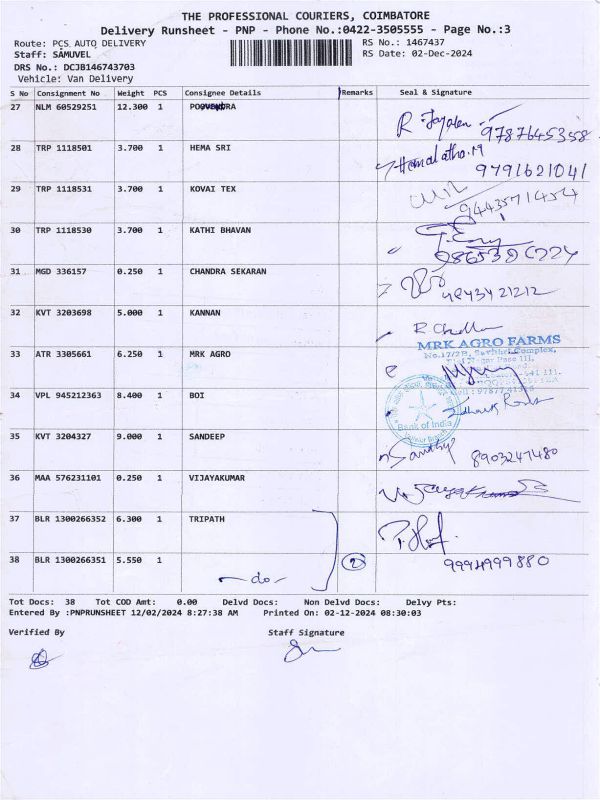 THE PROFESSIONAL COURIERS, COIMBATORE
Delivery Runsheet - PNP - Phone No.:0422-3505555 - Page No.:3
Route: PCS AUTO DELIVERY RS No.: 1467437
Staff: SAMUVEL RS Date: 02-Dec-2024
DRS No.: DCJB146743703
Vehicle: Van Delivery
S No Consignment No Weight PCS Consignee Details Remarks Seal & Signature
27 NLM 60529251 12.300 1
9787645358
28 TRP 1118501 3.700 1 HEMA SRI Hemalatha.M
9791621041
29 TRP 1118531 3.700 1 KOVAI TEX
9443571454
30 TRP 1118530 3.700 1 KATHI BHAVAN
31 MGD 336157 0.250 1 CHANDRA SEKARAN
9843421212
32 KVT 3203698 5.000 1 KANNAN
33 ATR 3305661 6.250 1 MRK AGRO MRK AGRO FARMS
No.17/2B, Savithri Complex,
34 VPL 945212363 8.400 1 BOI
Bank of India
35 KVT 3204327 9.000 1 SANDEEP Sandhip
8903247480
36 MAA 576231101 0.250 1 VIJAYAKUMAR Vijayakumar
37 BLR 1300266352 6.300 1 TRIPATH
38 BLR 1300266351 5.550 1 2 9994999880
- do -
Tot Docs: 38 Tot COD Amt: 0.00 Delvd Docs: Non Delvd Docs: Delvy Pts:
Entered By :PNPRUNSHEET 12/02/2024 8:27:38 AM Printed On: 02-12-2024 08:30:03
Verified By Staff Signature